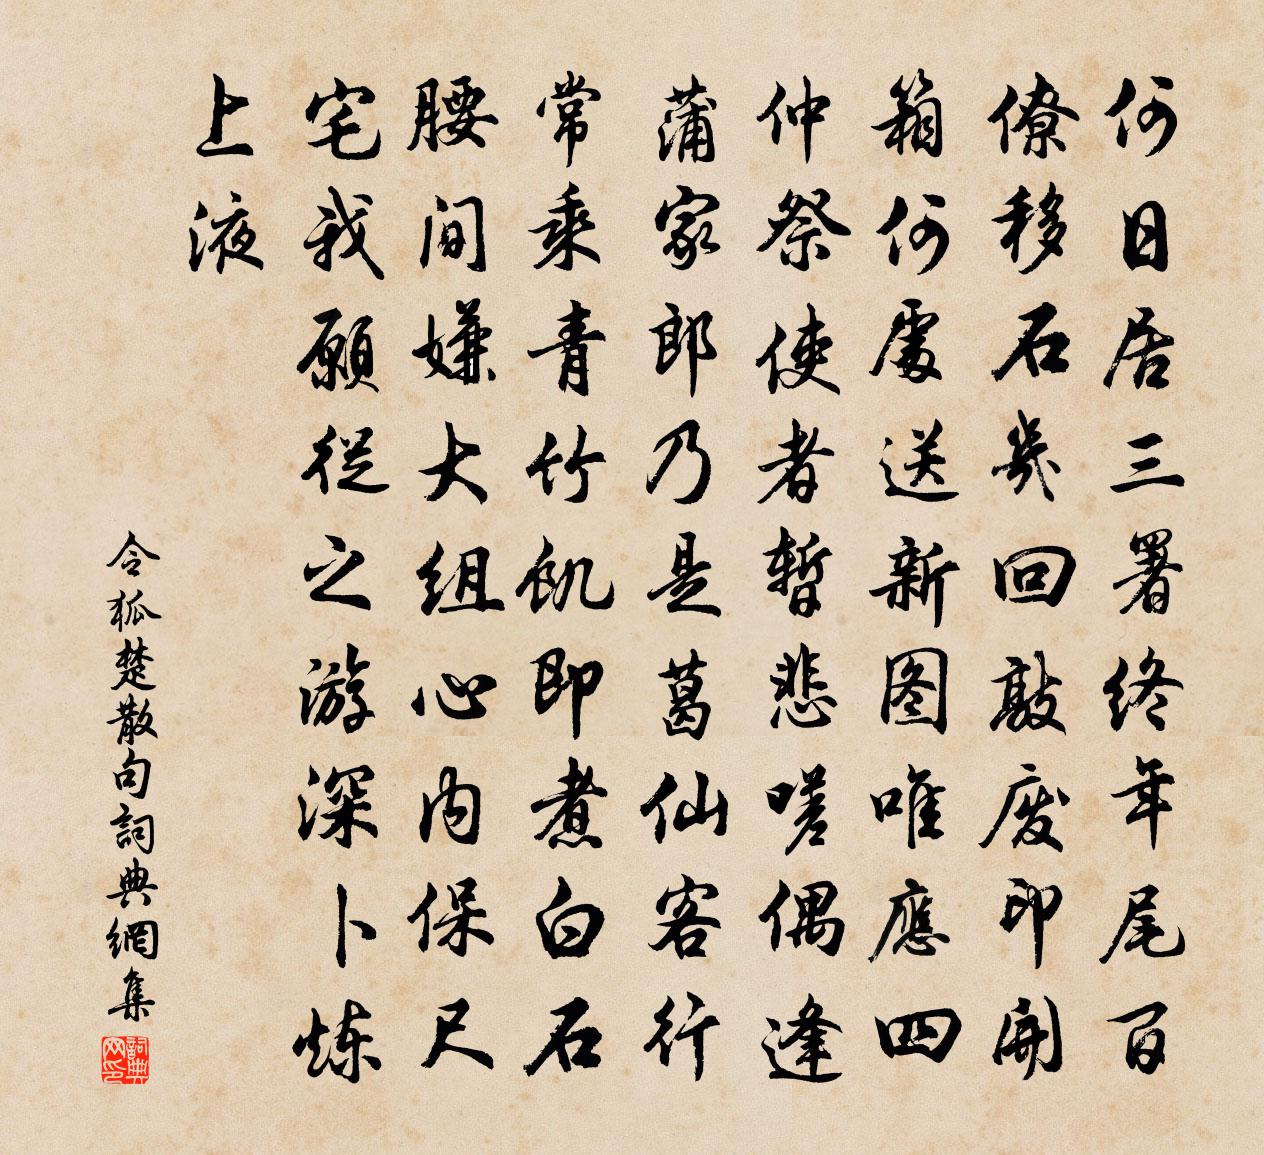 何日居三署终年尾百
僚移石几回敲废印开
箱何处送新图唯应四
仲祭使者暂悲嗟偶逢
蒲家郎乃是葛仙客行
常乘青竹饥即煮白石
腰间嫌大组心内保尺
宅我愿从之游深卜炼
上液
令狐楚散句詞典網集
詞典网印